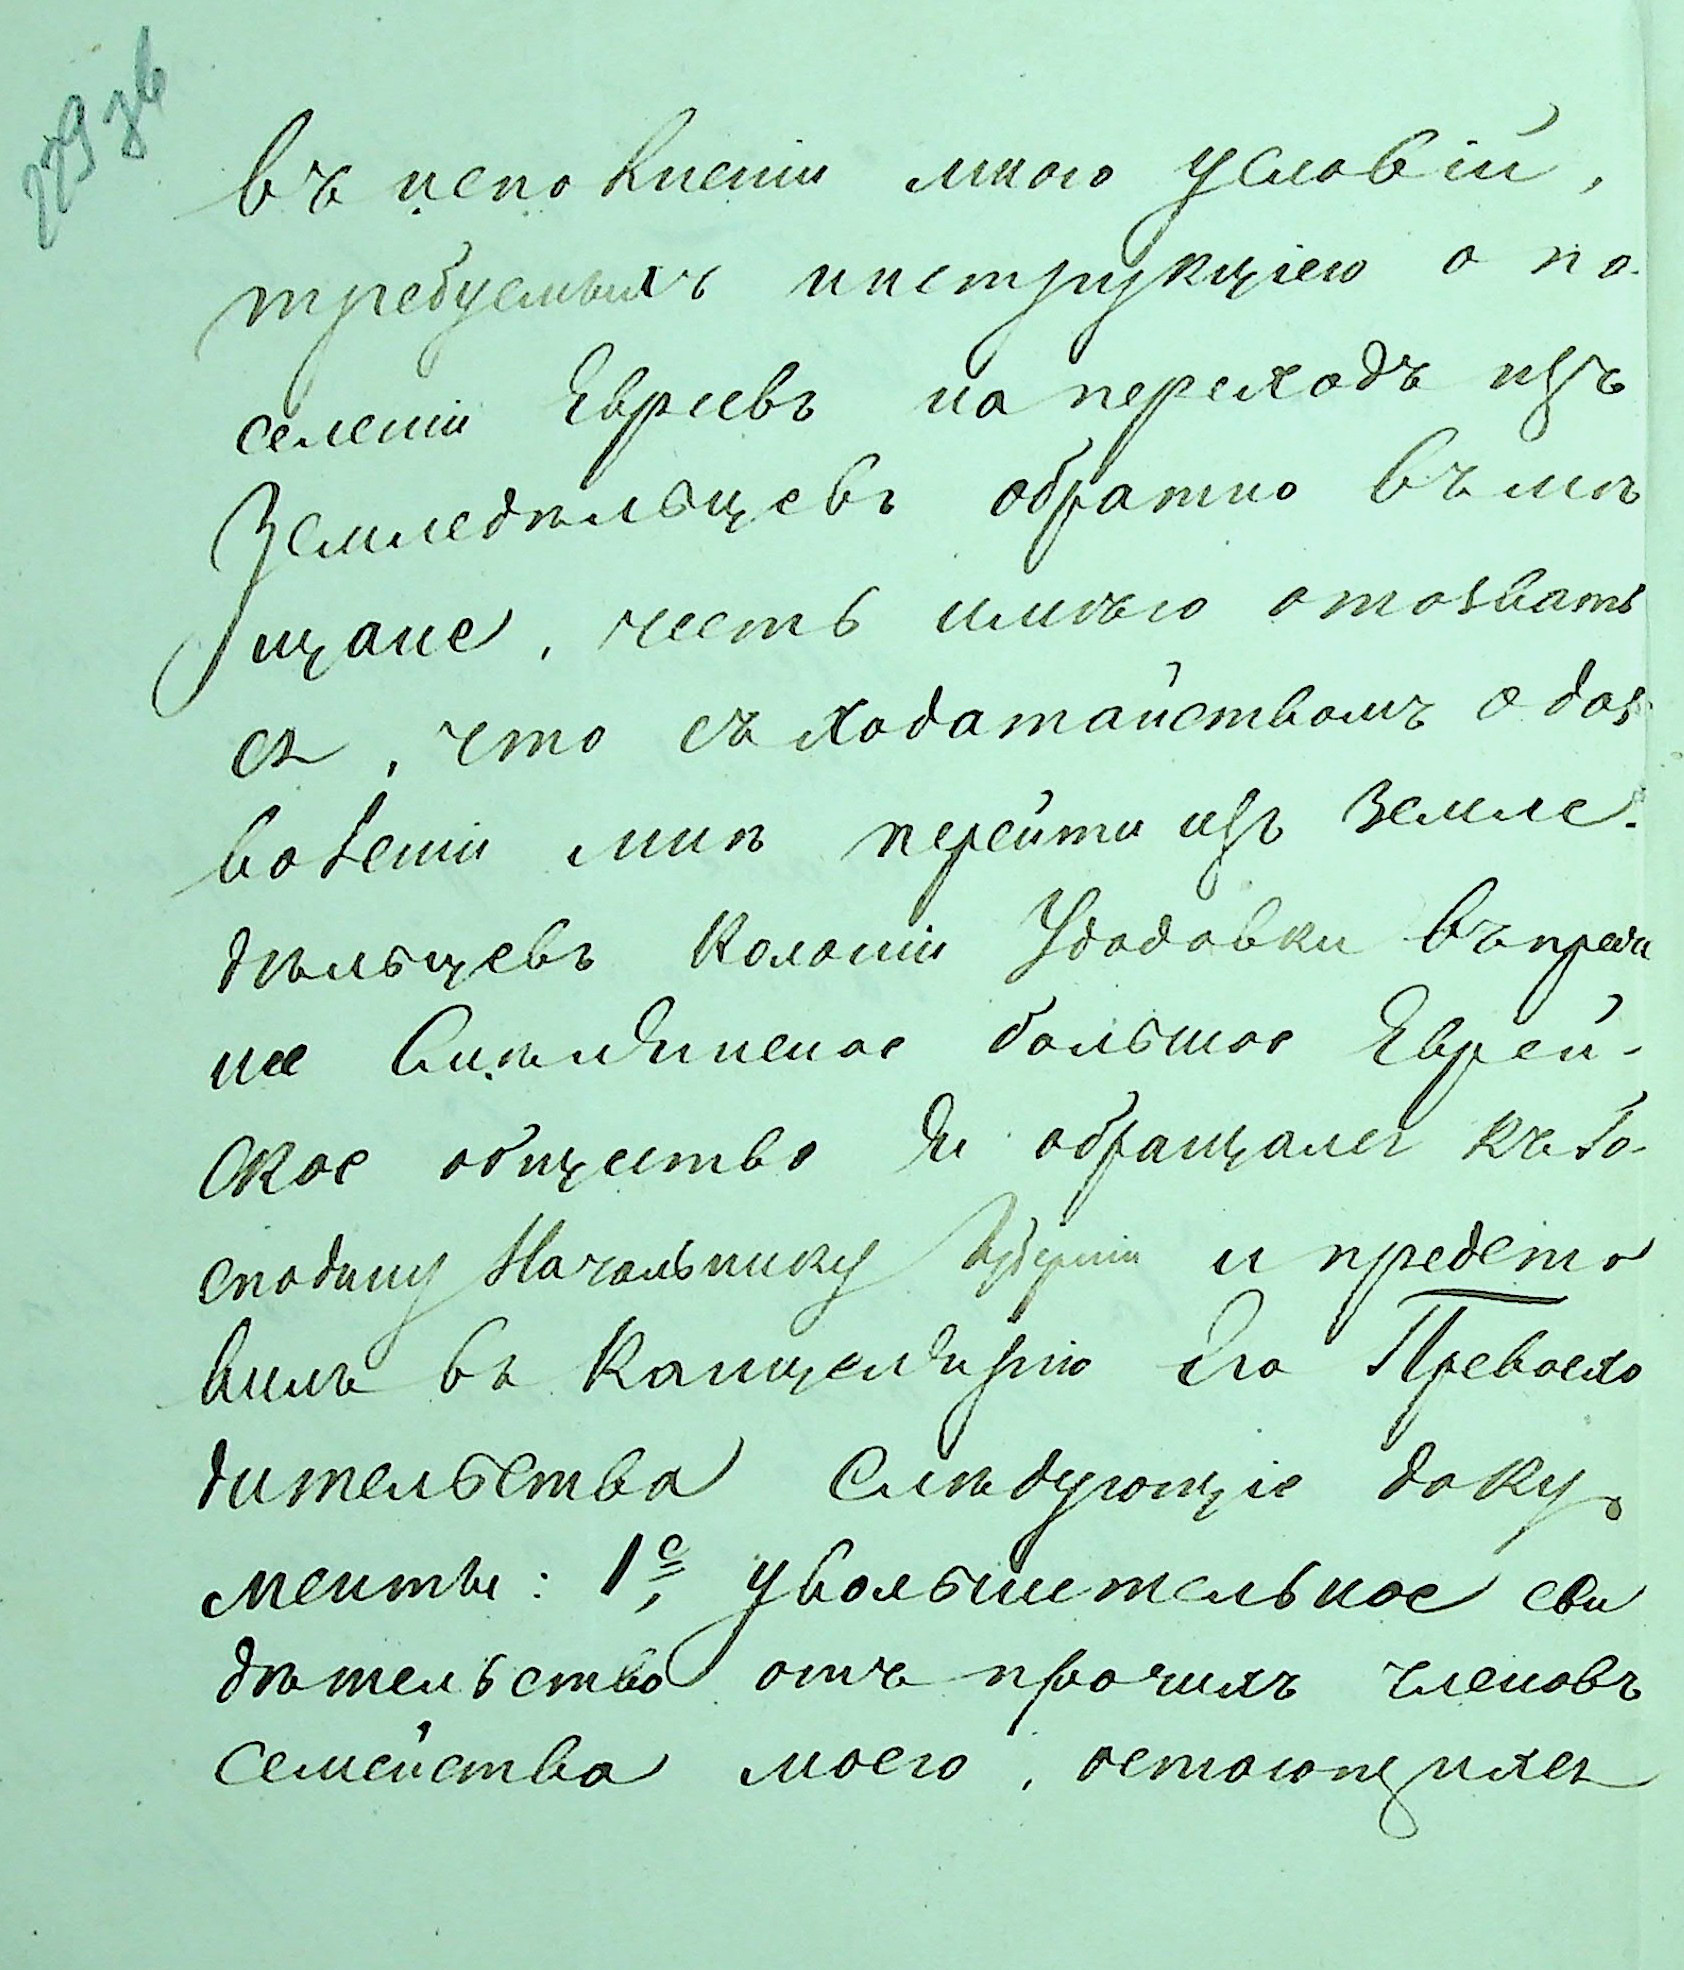 279 зв
въ исполненіи мною условій,
требуемыхъ инструкціею о по-
селеніи Евреевъ на переходъ изъ
Земледѣльцевъ обратно въ мѣ
щане, честь имѣю отозвать
ся, что съ ходатайствомъ о доз
воленіи мнѣ перейти изъ Земле-
дѣльцевъ Колоніи Удодовки въ преж
нее большое Еврей-
ское общество я обращался къ Го-
сподину Начальнику Губерніи и предста
вилъ въ Канцелярію Его Превосхо
дительства слѣдующіе доку-
менты: 1е, увольнительное сви
дѣтельство отъ прочихъ членовъ
семейства моего, остающихся